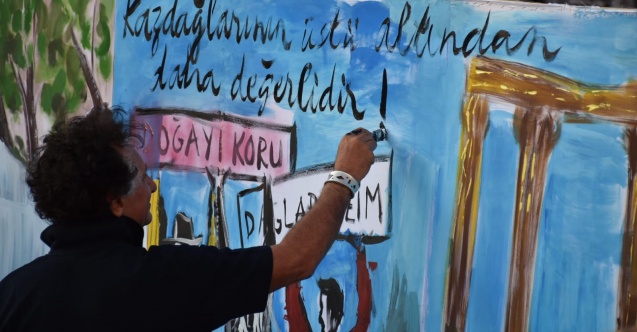 Kazdağlarının üstü altından
daha değerlidir!
DOĞAYI KORU